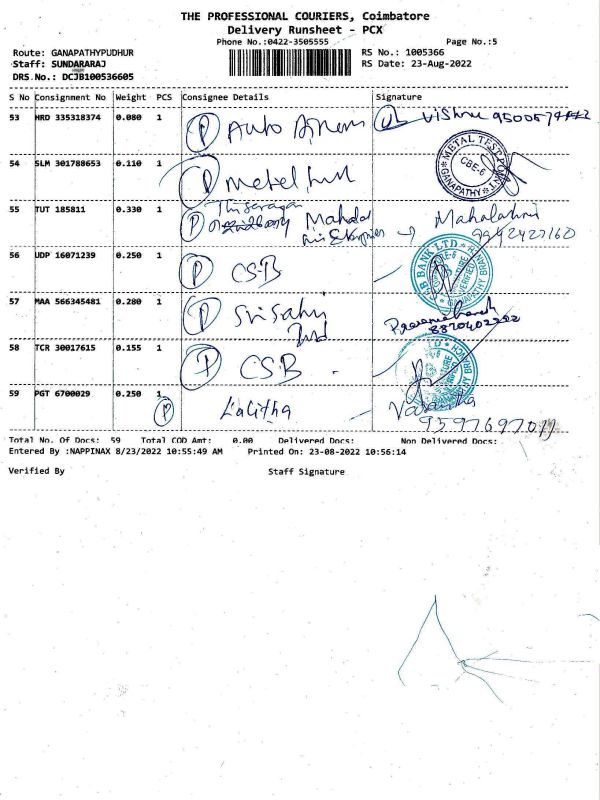 THE PROFESSIONAL COURIERS, Coimbatore
Delivery Runsheet - PCX
Phone No.:0422-3505555 Page No.:5
Route: GANAPATHYPUDHUR RS No.: 1005366
Staff: SUNDARARAJ RS Date: 23-Aug-2022
DRS.No.: DCJB100536605
S No Consignment No Weight PCS Consignee Details Signature
53 HRD 335318374 0.080 1 P Auto
54 SLM 301788653 0.110 1 P Metal METAL TEST POINT CBE-6 GANAPATHY
55 TUT 185811 0.330 1 P Mahalaxmi
56 UDP 16071239 0.250 1 P CSB CSB BANK LTD
57 MAA 566345481 0.280 1 P Sri 8870402252
58 TCR 30017615 0.155 1 P CSB
59 PGT 6700029 0.250 1 P Lalitha
Total No. Of Docs: 59 Total COD Amt: 0.00 Delivered Docs: Non Delivered Docs:
Entered By :NAPPINAX 8/23/2022 10:55:49 AM Printed On: 23-08-2022 10:56:14
Verified By Staff Signature